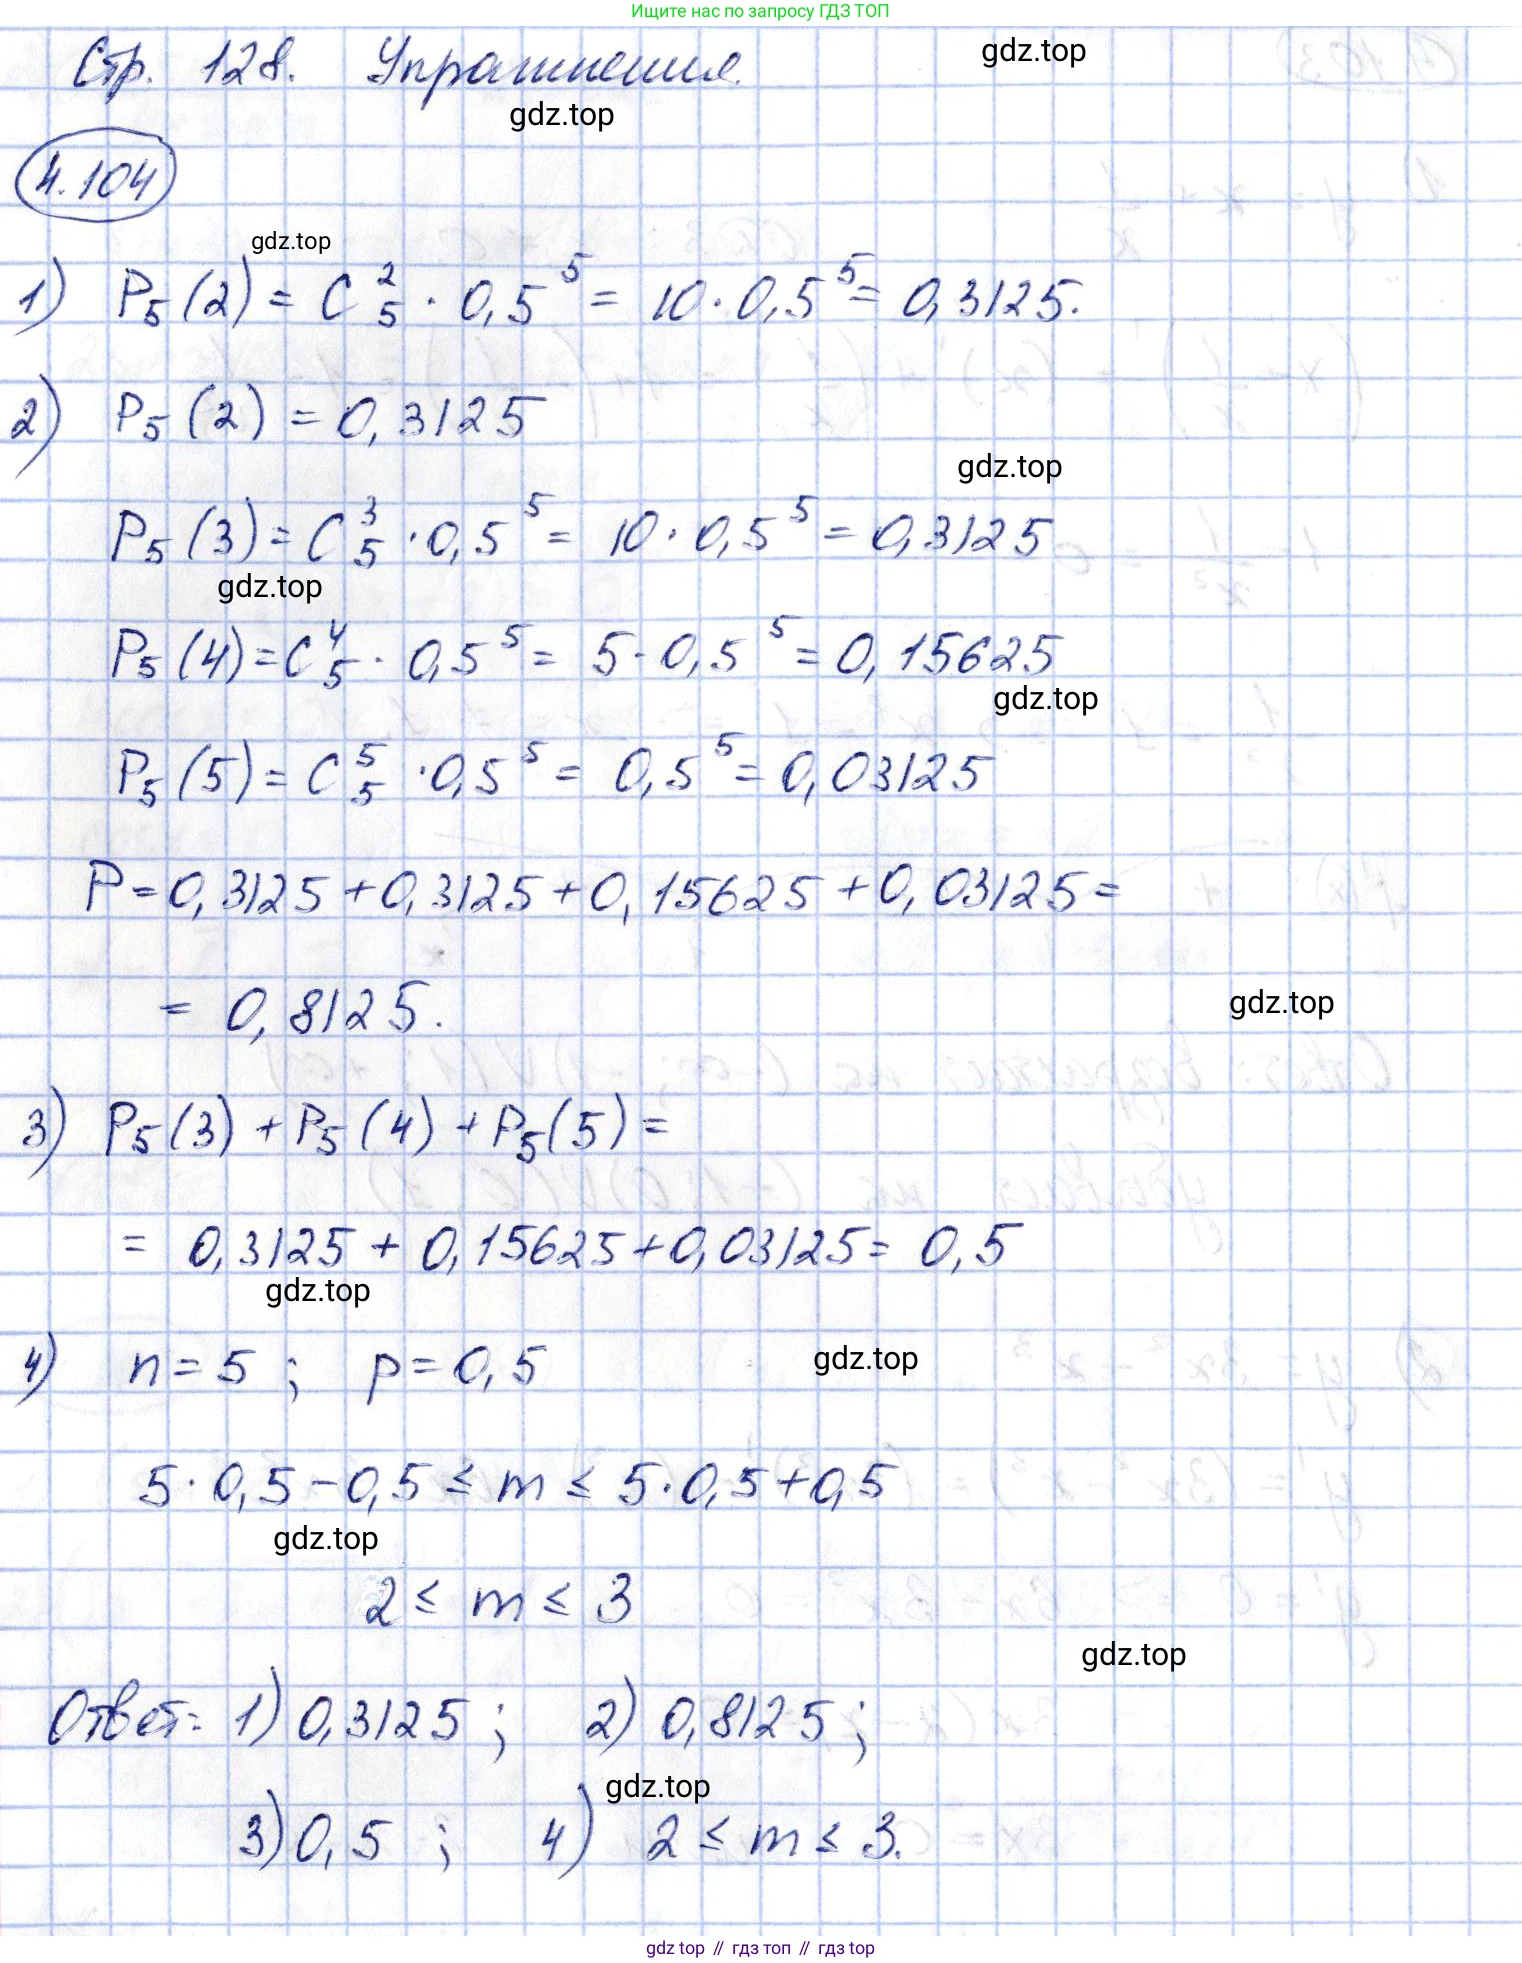 Ищите нас по запросу ГДЗ ТОП
Стр. 128. Упражнения.
gdz.top
gdz.top
4.104
gdz.top
1) P₅(2) = C₅² · 0,5⁵ = 10 · 0,5⁵ = 0,3125.
2) P₅(2) = 0,3125
gdz.top
P₅(3) = C₅³ · 0,5⁵ = 10 · 0,5⁵ = 0,3125
gdz.top
P₅(4) = C₅⁴ · 0,5⁵ = 5 · 0,5⁵ = 0,15625
gdz.top
P₅(5) = C₅⁵ · 0,5⁵ = 0,5⁵ = 0,03125
P = 0,3125 + 0,3125 + 0,15625 + 0,03125 =
= 0,8125.
gdz.top
3) P₅(3) + P₅(4) + P₅(5) =
= 0,3125 + 0,15625 + 0,03125 = 0,5
gdz.top
4) n = 5 ; p = 0,5
gdz.top
5 · 0,5 − 0,5 ≤ m ≤ 5 · 0,5 + 0,5
gdz.top
2 ≤ m ≤ 3
gdz.top
Ответ: 1) 0,3125 ; 2) 0,8125 ;
gdz.top
3) 0,5 ; 4) 2 ≤ m ≤ 3.
gdz top // гдз топ // гдз top